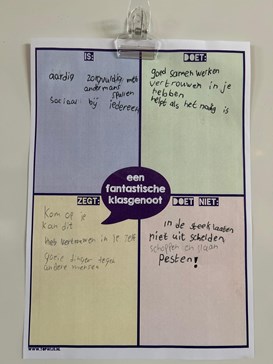 IS:
aardig zorgvuldig met
andermans
spullen
sociaal bij iedereen
DOET:
goed samen werken
vertrouwen in je
hebben
helpt als het nodig is
een
fantastische
klasgenoot
ZEGT:
Kom op je
kan dit
heb vertrouwen in je zelf
goeie dingen tegen
andere mensen
DOET NIET:
in de steek laaten
niet uit schelden
schoppen en slaan
Pesten!